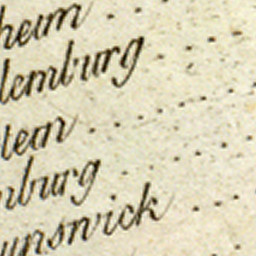 heim . . .
lemburg . . .
lem . . . . . .
nburg . . . . .
unswick . . .